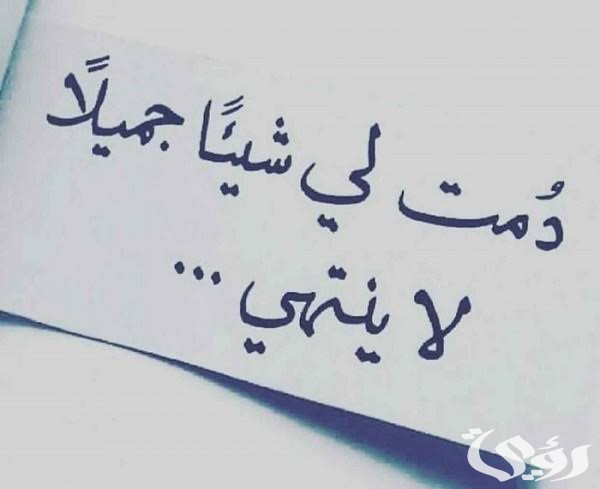 دُمت لي شيئًا جميلًا
لا ينتهي ...
رؤية